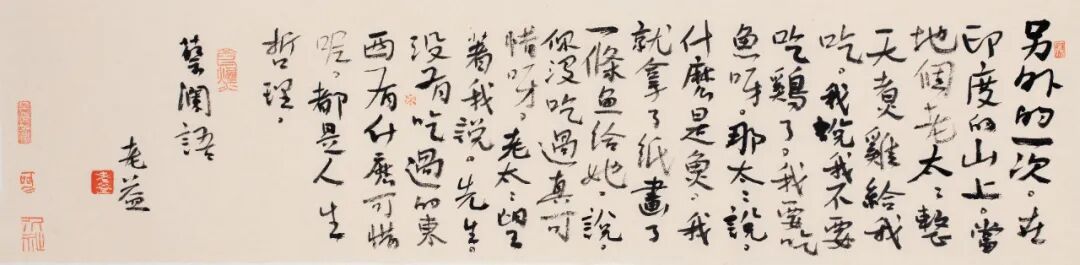 另外的一次。在
印度的山上。當
地個老太〻整
天煮雞給我
吃。我說我不要
吃鷄了。我要吃
魚呀。那太〻說。
什麼是魚。我
就拿了紙畫了
一條魚給她。說。
你沒吃過真可
惜呀。老太〻望
著我說。先生。
没有吃過的東
西有什麼可惜
呢。都是人生
哲理。
蔡瀾語
老益